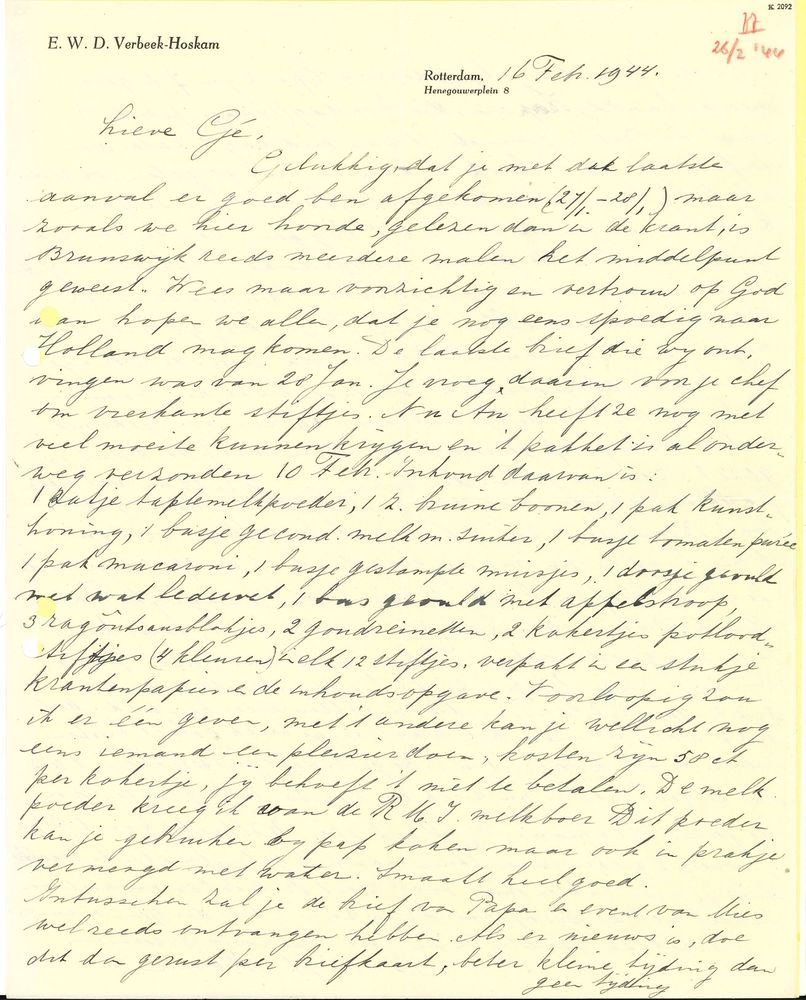 K 2092
II
26/2 '44
E. W. D. Verbeek-Hoskam
Rotterdam, 16 Feb. 1944.
Henegouwerplein 8
Lieve Gé,
Gelukkig, dat je met dat laatste
aanval er goed ben afgekomen (27/1 – 28/1) maar
zooals we hier hoorde, gelezen dan in de krant, is
Brunswijk reeds meerdere malen het middelpunt
geweest. Wees maar voorzichtig en vertrouw op God
dan hopen we allen, dat je nog eens spoedig naar
Holland mag komen. De laatste brief die wij ont-
vingen was van 28 Jan. Je vroeg daarin voor je chef
om vierkante stiftjes. Nu heeft ze nog met
veel moeite kunnen krijgen en 't pakket is al onder-
weg verzonden 10 Feb. Inhoud daarvan is:
1 zakje taptemelkpoeder, 1 z. bruine boonen, 1 pak kunst-
honing, 1 busje gecond. melk m. suiker, 1 busje tomatenpurée
1 pak macaroni, 1 busje gestampte muisjes, 1 doosje gevuld
met wat ledervet, 1 bus gevuld met appelstroop,
3 ragoûtsausblokjes, 2 goudreinetten, 2 kokertjes potlood-
stiftjes (4 kleuren) in elk 12 stiftjes. verpakt in een stukje
krantenpapier en de inhoudsopgave. Voorloopig zou
ik er één geven, met 't andere kan je wellicht nog
eens iemand een pleizier doen, kosten zijn 58 ct
per kokertje, jij behoeft 't niet te betalen. De melk
poeder kreeg ik van de R.M.I. melkboer Dit poeder
kan je gebruiken bij pap koken maar ook in prakje
vermengd met water. Smaakt heel goed.
Intusschen zal je de brief van Papa en event. van Mies
wel reeds ontvangen hebben. Als er nieuws is, doe
dit dan gerust per briefkaart, beter kleine tijding dan
geen tijding